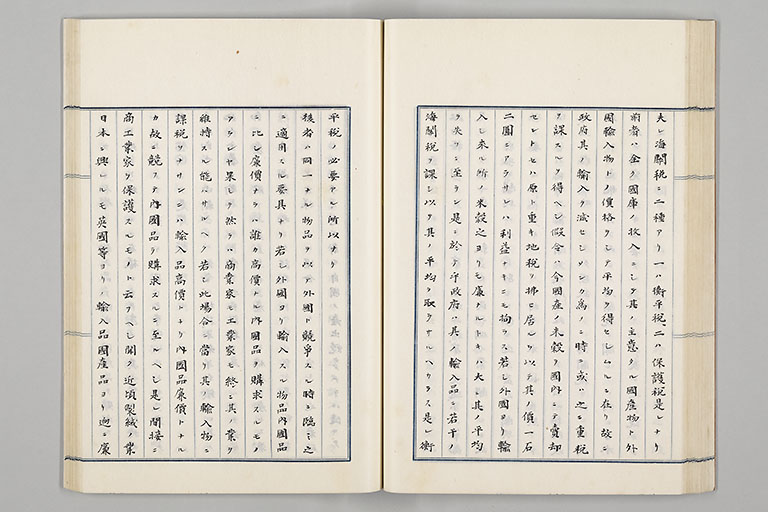 夫レ海關税ニ二種アリ一ハ衡平税、二ハ保護税是レナリ
前者ハ全ク國庫ノ收入ニシテ其ノ主意タル國産物ト外
國輸入物トノ價格ヲシテ平均ヲ得セシムルニ在リ故ニ
政府其ノ輸入ヲ減セシメンカ為メニ時ニ或ハ之ニ重税
ヲ課スルヲ得ヘシ假令ハ今國産ノ米穀ヲ國内ニテ賣却
セントセハ原ト重キ地税ヲ拂ヒ居レリ以テ其ノ價一石
二圓ニアラサレハ利益ナキニモ拘ラス若シ外國ヨリ輸
入シ來ル所ノ米穀之ヨリモ廉ナルトキハ大ニ其ノ平均
ヲ失フニ至ラン是ニ於テ乎政府ハ其ノ輸入品ニ若干ノ
海關税ヲ課シ以テ其ノ平均ヲ取ラサルヘカラス是レ衡
平税ノ必要アル所以ナリ
後者ハ同一ナル物品ヲ以テ外國ト競爭スル時ニ臨ミ之
ニ適用スル要具ナリ若シ外國ヨリ輸入スル物品内國品
ニ比シ廉價ナラハ誰カ高價ナル内國品ヲ購求スルモノ
アランヤ果シテ然ラハ商業家モ工業家モ終ニ其ノ業ヲ
維持スル能ハサルヘク若シ此場合ニ當リ其ノ輸入物ニ
課税ヲナサンニハ輸入品高價トナリ内國品廉價トナル
カ故ニ競フテ内國品ヲ購求スルニ至ルヘシ是レ間接ニ
商工業家ヲ保護スルモノト云フヘシ聞ク近頃製絨ノ業
日本ニ興レルモ英國等ヨリノ輸入品國産品ヨリ迥ニ廉